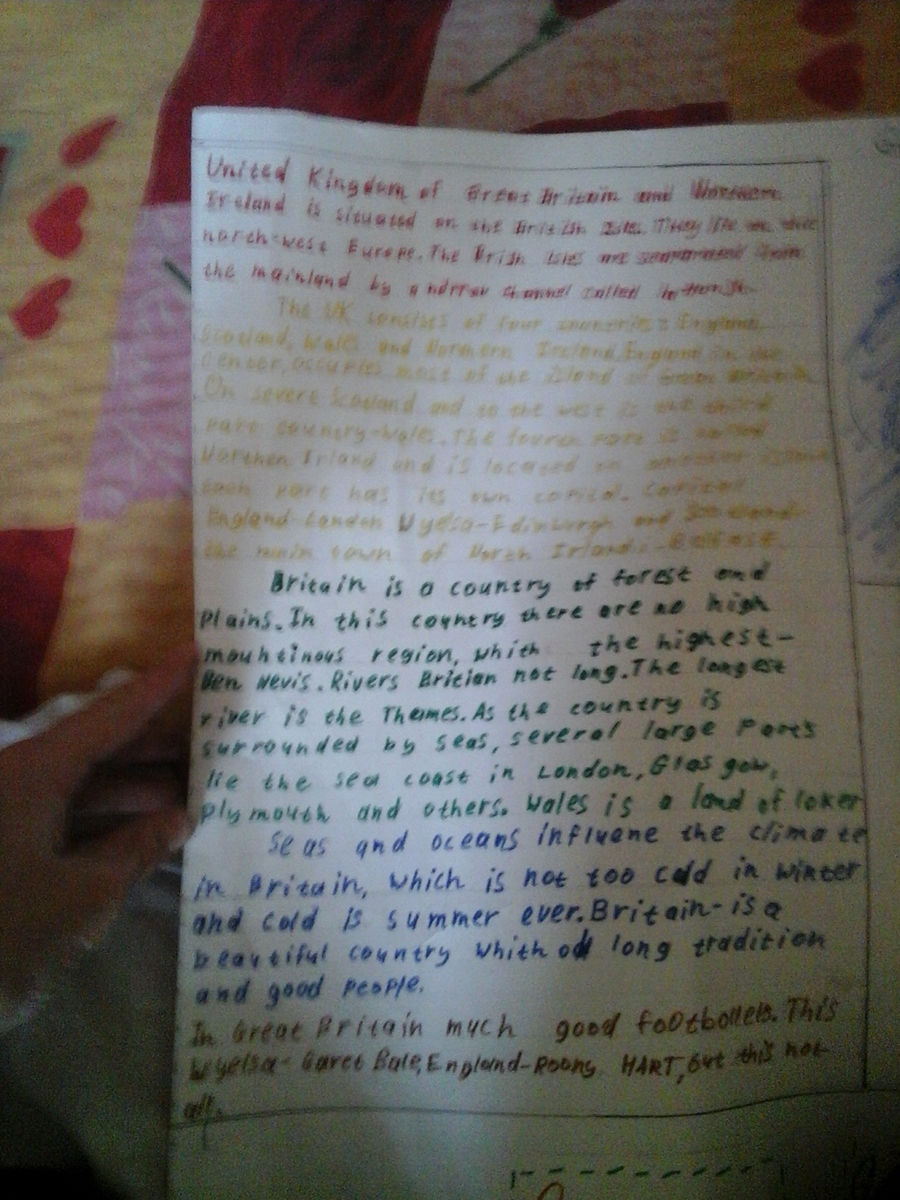 United Kingdom of Great Britain and Northern
Ireland is situated on the British Isles. They lie on the
north-west Europe. The Brish Isles are separated from
the mainland by a narrow channel called
The UK consists of four countries: England,
Scotland, Wales and Northern Ireland. England in the
Center, occupies most of the Island of Great Britain.
On severe Scotland and to the west is the third
part country-Wales. The fourth part is called
Northen Irland and is located on another island
each part has its own capital. Capital
England-London Uyelsa-Edinburgh and Scotland-
the main town of North Irland:-Belfast.
Britain is a country of forest and
Plains. In this country there are no high
mouhtinous region, which the highest-
Ben Nevis. Rivers Britian not long. The longest
river is the Thames. As the country is
surrounded by seas, several large Ports
lie the sea coast in London, Glasgow,
Plymouth and others. Wales is a land of loker
Seas and oceans influene the climate
in Britain, which is not too cold in winter
and cold is summer ever. Britain-is a
beautiful country whith long tradition
and good people.
In Great Britain much good footbollers. This
Uyelsa-Garet Bale, England-Roony HART, but this not
all.